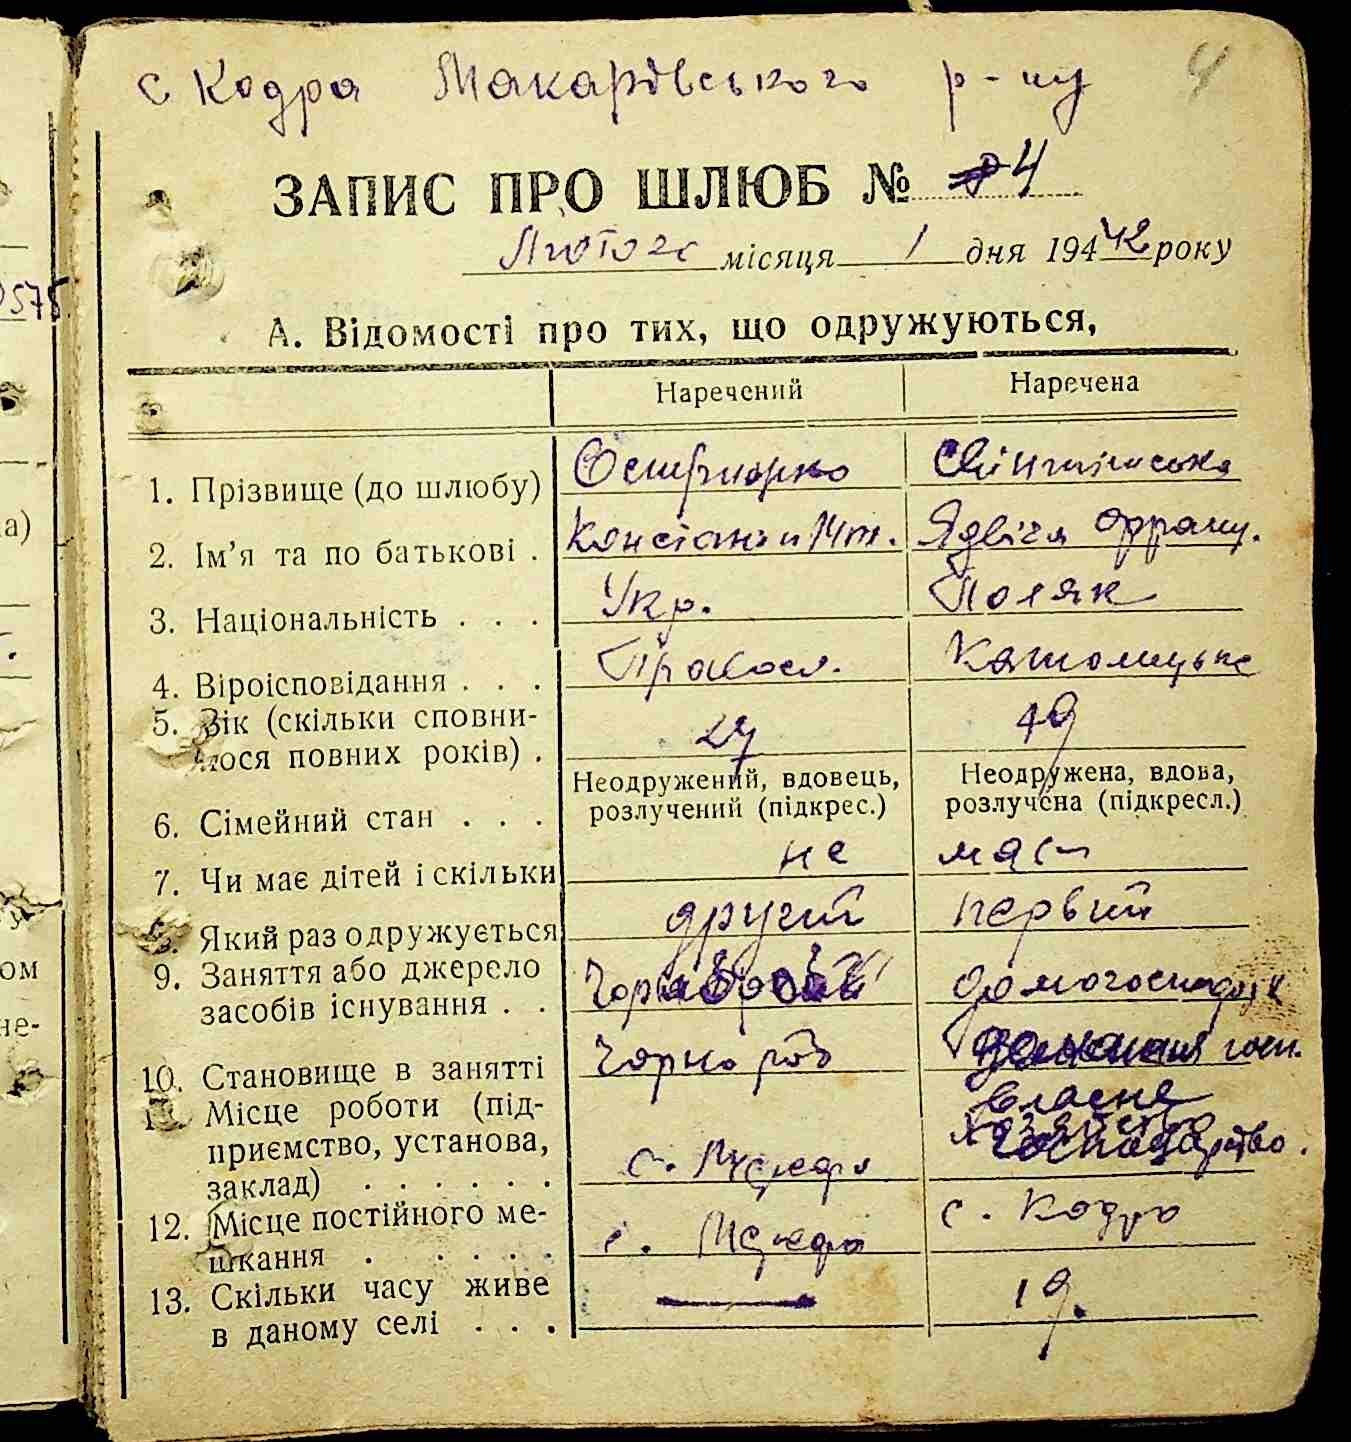 с Кодра Макарівського р-ну
ЗАПИС ПРО ШЛЮБ № 4
Лютого місяця 1 дня 194 42 року
А. Відомості про тих, що одружуються,
Наречений Наречена
1. Прізвище (до шлюбу)
2. Ім’я та по батькові . Констант. Ядвіга Франц.
3. Національність . . . Укр. Поляк
4. Віроісповідання . . . Правосл. Католицьке
5. Вік (скільки сповни-
лося повних років) . 27 19
Неодружений, вдовець, Неодружена, вдова,
6. Сімейний стан . . . розлучений (підкрес.) розлучена (підкресл.)
7. Чи має дітей і скільки не має
8. Який раз одружується другий первий
9. Заняття або джерело
засобів існування . . Чорнороб
10. Становище в занятті Чорнороб госп.
11. Місце роботи (під- власне
приємство, установа, господарство.
заклад) . . . . . . с.
12. Місце постійного ме- с. Кодра
шкання . . . . . с.
13. Скільки часу живе 19.
в даному селі . . .